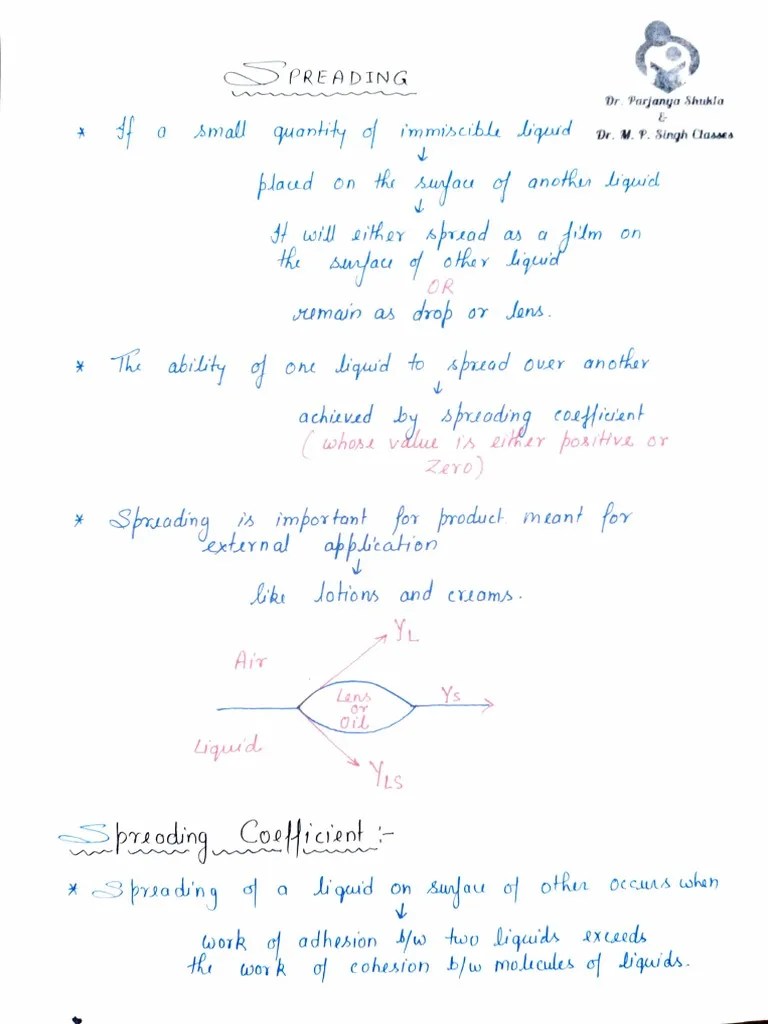 SPREADING
Dr. Parjanya Shukla
&
Dr. M. P. Singh Classes
* If a small quantity of immiscible liquid
↓
placed on the surface of another liquid
↓
It will either spread as a film on
the surface of other liquid
OR
remain as drop or lens.
* The ability of one liquid to spread over another
↓
achieved by spreading coefficient
(whose value is either positive or
Zero)
* Spreading is important for product meant for
external application
↓
like lotions and creams.
γL
Air
Lens
or
Oil
γS
Liquid
γLS
Spreading Coefficient :-
* Spreading of a liquid on surface of other occurs when
↓
work of adhesion b/w two liquids exceeds
the work of cohesion b/w molecules of liquids.